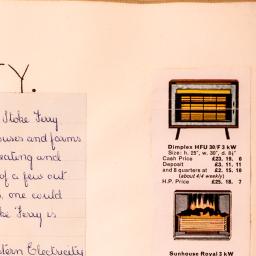 Y.
Stoke Ferry
ouses and farms
eating and
of a few out
, one could
ke Ferry is
stern Electricity
Dimplex HFU 30/F 3 kW
Size: h. 25", w. 30", d. 8½"
Cash Price £23. 19. 6
Deposit £3. 11. 11
and 8 quarters at £2. 15. 10
(about 4/4 weekly)
H.P. Price £25. 18. 7
Sunhouse Royal 3 kW